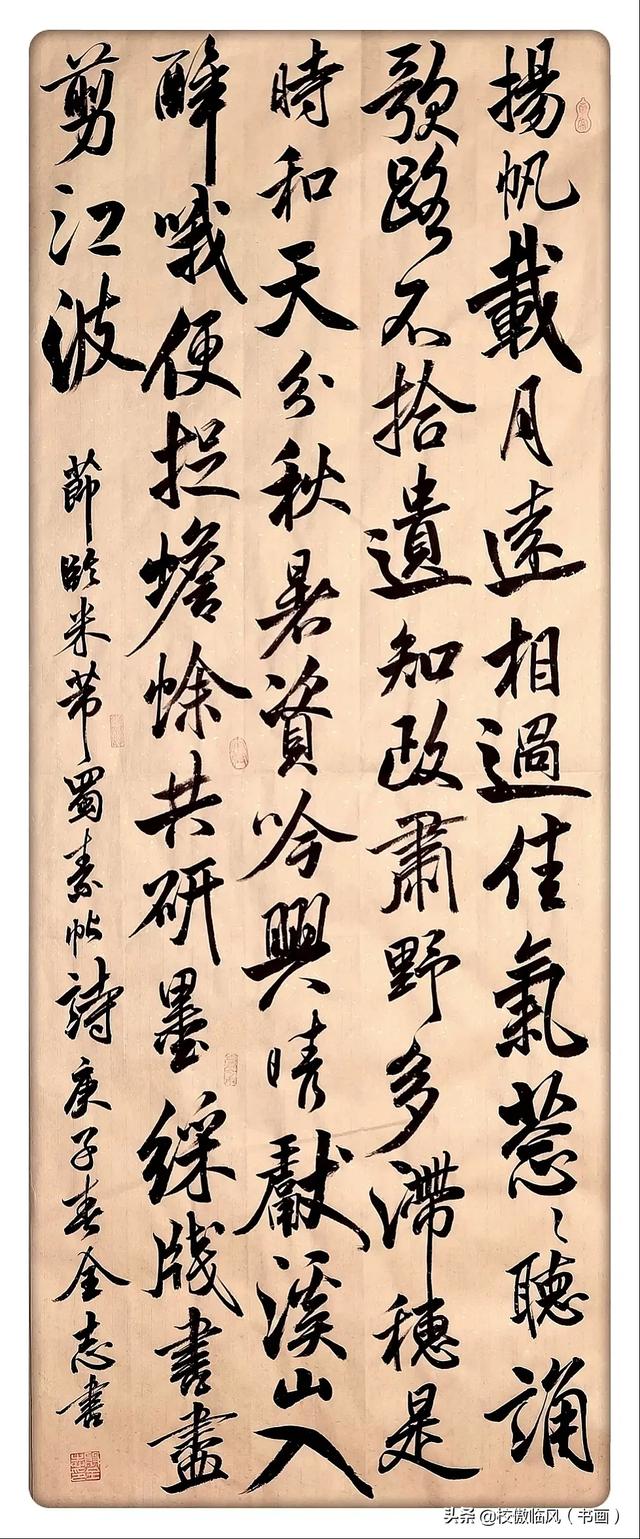 揚帆載月遠相過佳氣蔥〻聽誦
歌路不拾遺知政肅野多滯穗是
時和天分秋暑資吟興晴獻溪山入
醉哦便捉蟾蜍共研墨綵牋書盡
剪江波
節臨米芾蜀素帖詩庚子春全志書
头条@校傲临风（书画）